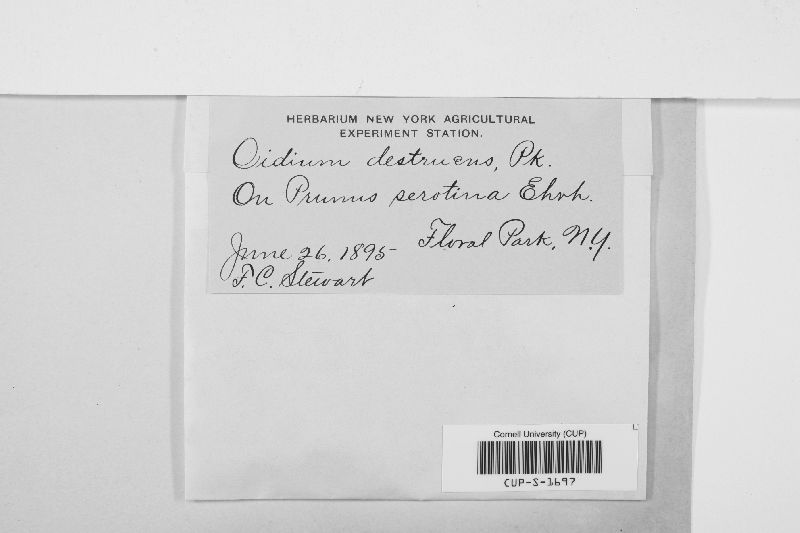 HERBARIUM NEW YORK AGRICULTURAL
EXPERIMENT STATION.
Oidium destruens, Pk.
On Prunus serotina Ehrh.
Floral Park, N.Y.
June 26, 1895
F. C. Stewart
Cornell University (CUP)
CUP-S-1697